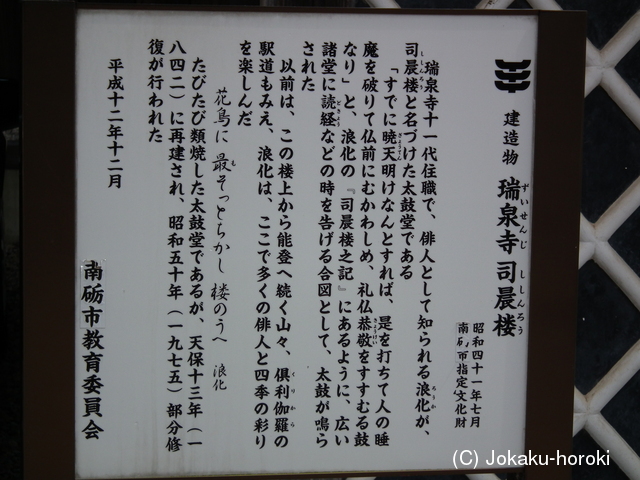 建造物 瑞泉寺 司晨楼
ずいせんじ ししんろう
昭和四十一年七月
南砺市指定文化財
瑞泉寺十一代住職で、俳人として知られる浪化が、
司晨楼と名づけた太鼓堂である
「すでに暁天明けなんとすれば、是を打ちて人の睡
魔を破りて仏前にむかわしめ、礼仏恭敬をすすむる鼓
なり」と、浪化の『司晨楼之記』にあるように、広い
諸堂に読経などの時を告げる合図として、太鼓が鳴ら
された
以前は、この楼上から能登へ続く山々、倶利伽羅の
駅道もみえ、浪化は、ここで多くの俳人と四季の彩り
を楽しんだ
花鳥に 最そっとちかし 楼のうへ 浪化
たびたび類焼した太鼓堂であるが、天保十三年(一
八四二)に再建され、昭和五十年(一九七五)部分修
復が行われた
平成十二年十二月
南砺市教育委員会
(C) Jokaku-horoki